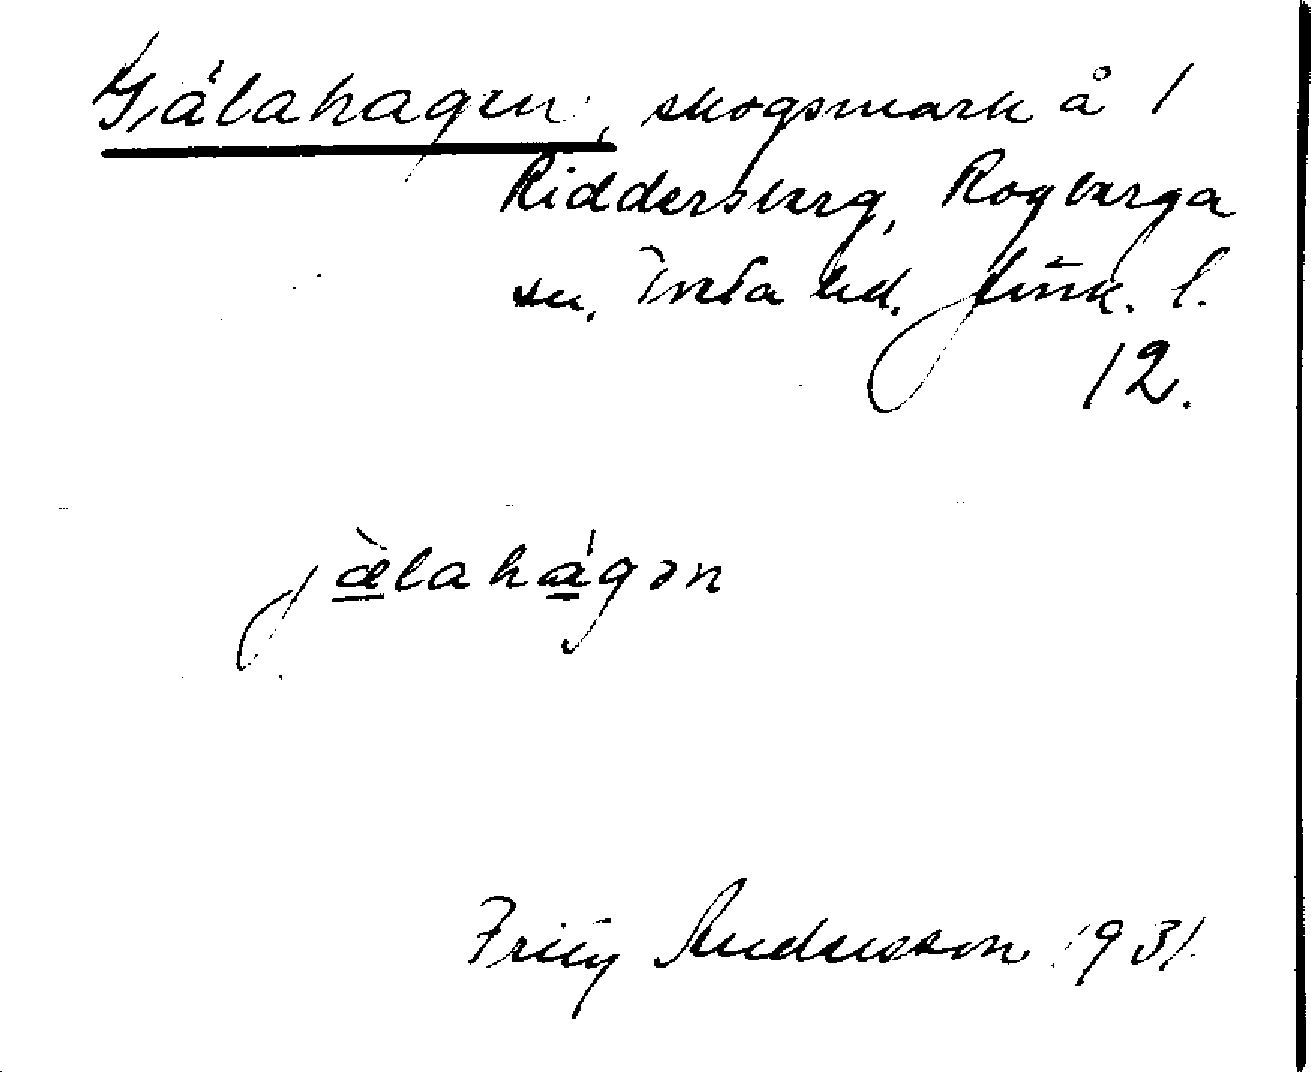 Gälahagen, skogsmark å 1
Riddersberg, Rogberga
sn. Tveta hd. Jönk. l.
12.
jæ̀lahágən
Fritz Andersson 1931.